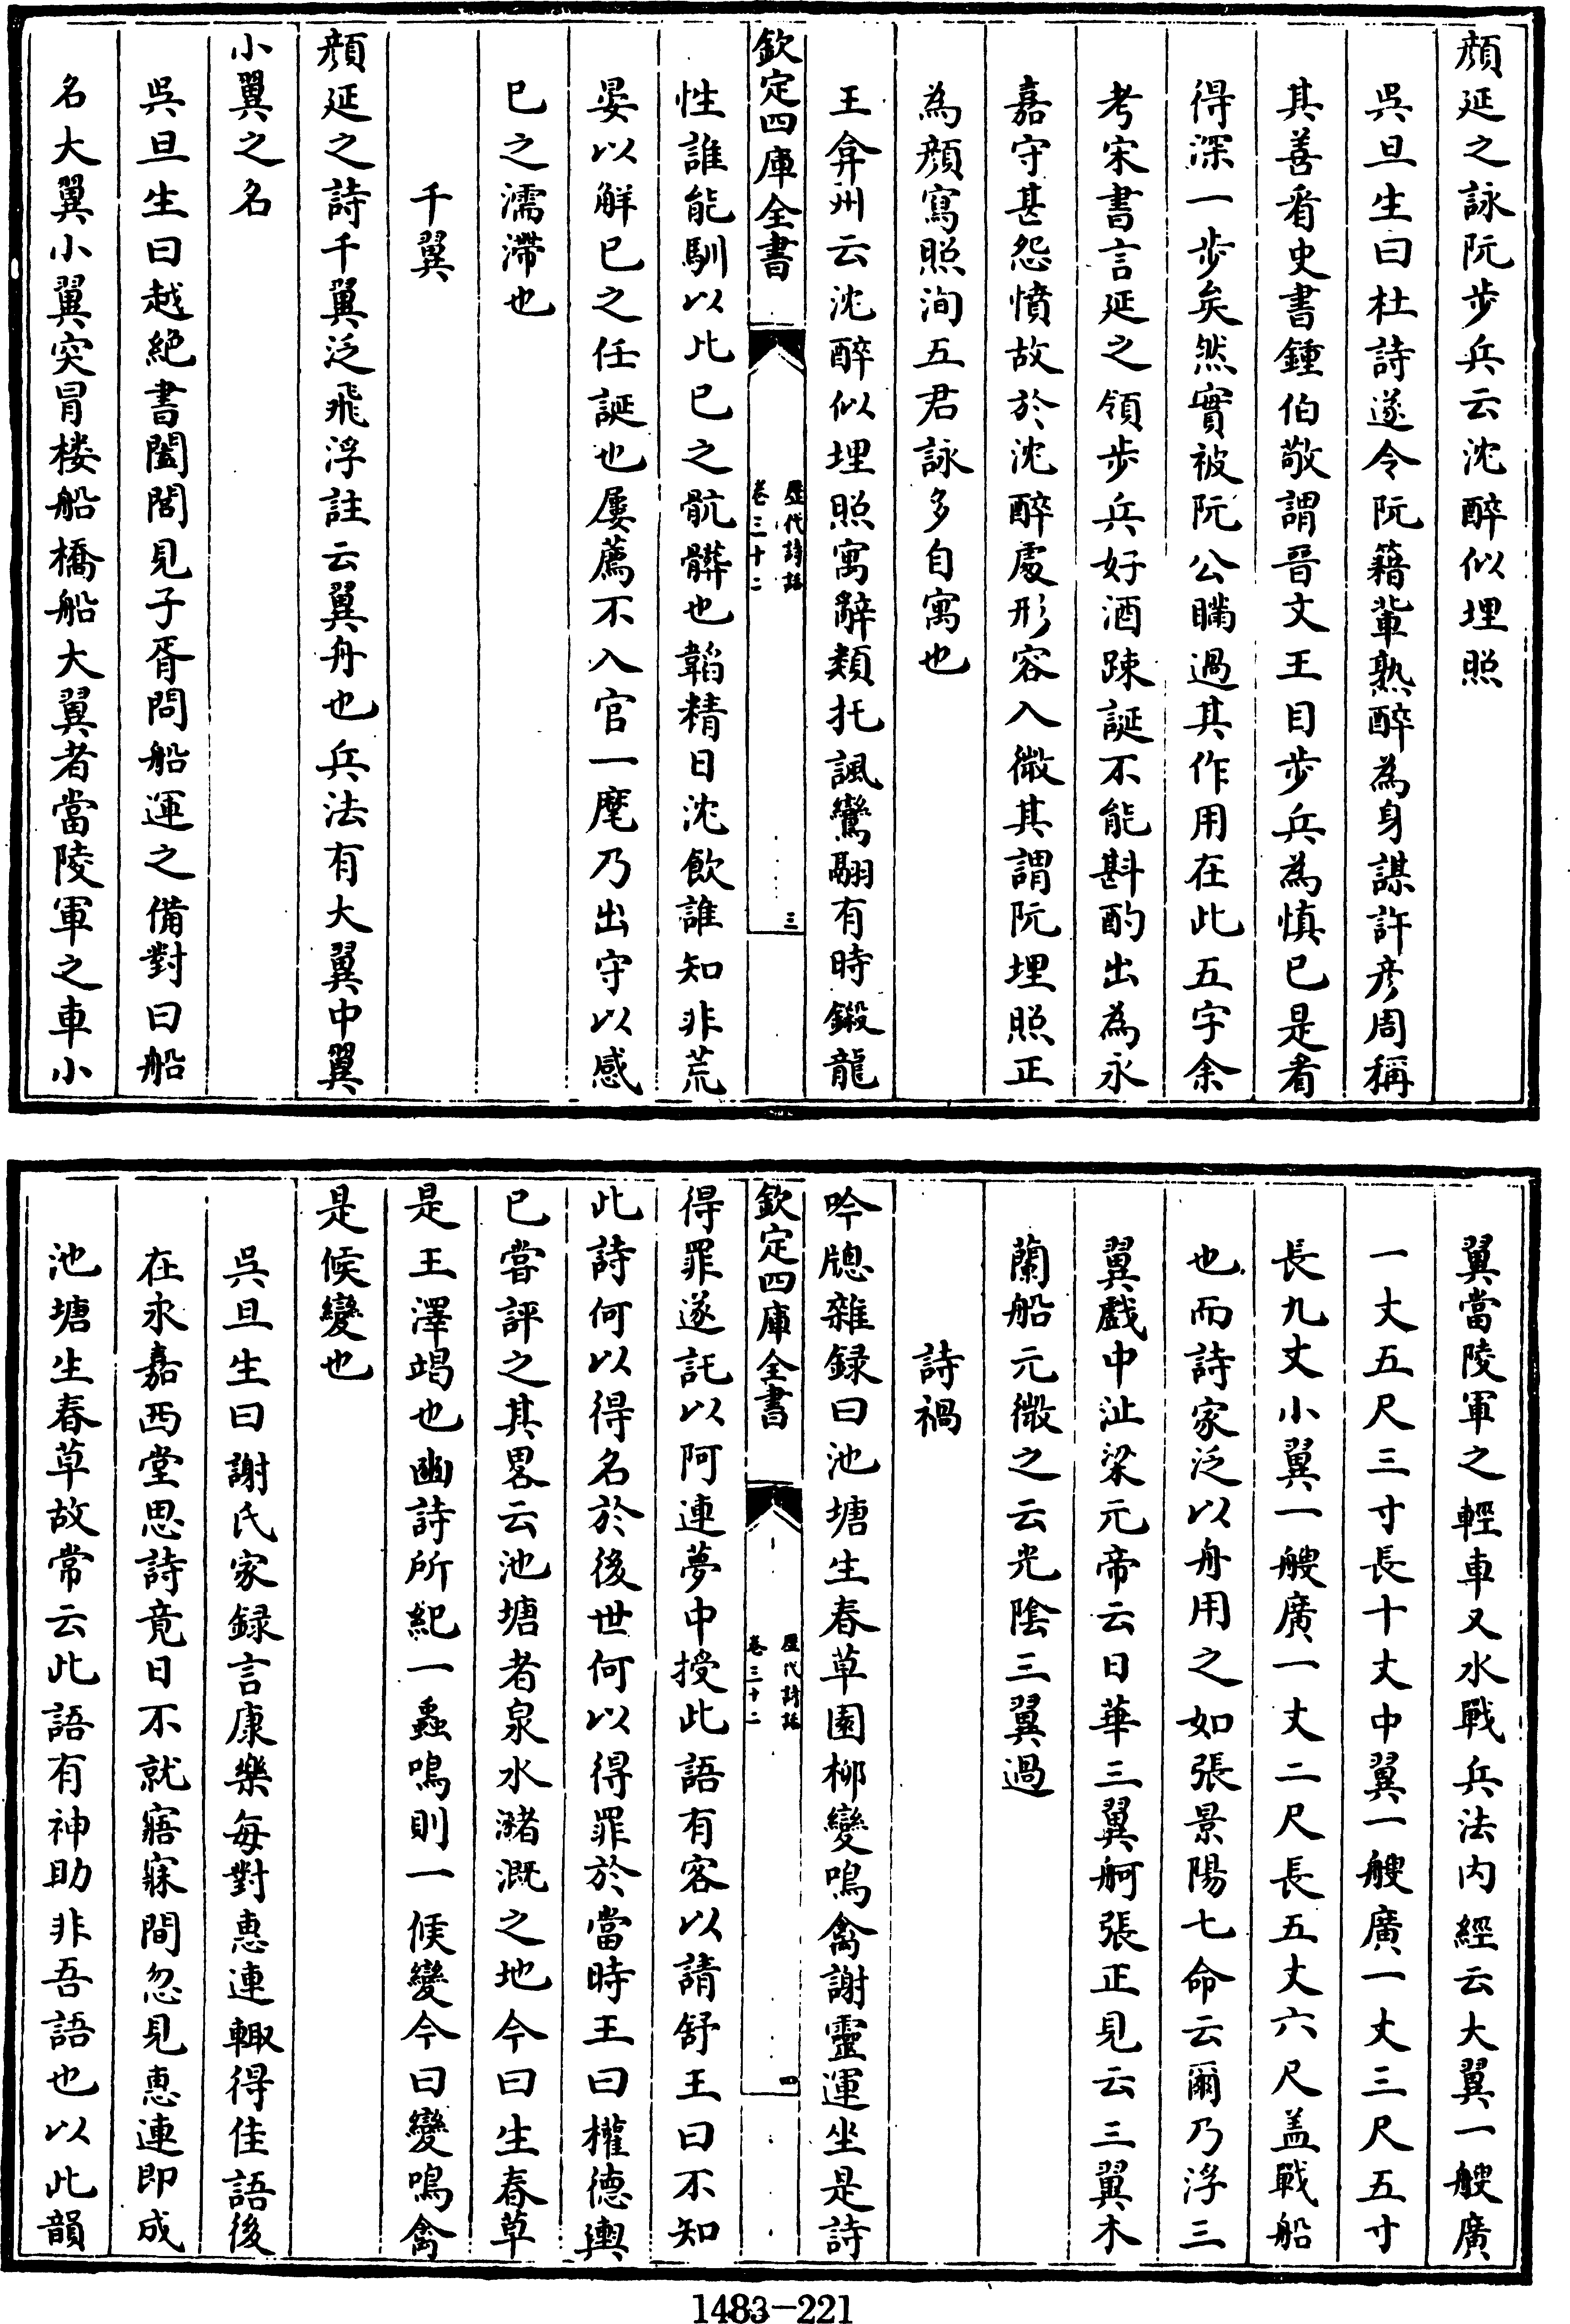 顏延之詠阮步兵云沈醉似埋照
吳旦生曰杜詩遂令阮籍輩熟醉為身謀許彥周稱
其善看史書鍾伯敬謂晉文王目步兵為慎已是看
得深一步矣然實被阮公瞞過其作用在此五字余
考宋書言延之領步兵好酒踈誕不能斟酌出為永
嘉守甚怨憤故於沈醉處形容入微其謂阮埋照正
為顏寫照洵五君詠多自寓也
王弇州云沈醉似埋照寓辭類托諷鸞翮有時鎩龍
欽定四庫全書
歷代詩話
卷三十二
三
性誰能馴以比已之骯髒也韜精日沈飲誰知非荒
晏以解已之任誕也屢薦不入官一麾乃出守以感
已之濡滯也
千翼
顏延之詩千翼泛飛浮註云翼舟也兵法有大翼中翼
小翼之名
吳旦生曰越絕書闔閭見子胥問船運之備對曰船
名大翼小翼突冒楼船橋船大翼者當陵軍之車小
翼當陵軍之輕車又水戰兵法內經云大翼一艘廣
一丈五尺三寸長十丈中翼一艘廣一丈三尺五寸
長九丈小翼一艘廣一丈二尺長五丈六尺盖戰船
也而詩家泛以舟用之如張景陽七命云爾乃浮三
翼戲中沚梁元帝云日華三翼舸張正見云三翼木
蘭船元微之云光陰三翼過
詩禍
吟牕雜録曰池塘生春草園柳變鳴禽謝靈運坐是詩
欽定四庫全書
歷代詩話
卷三十二
四
得罪遂託以阿連夢中授此語有客以請舒王曰不知
此詩何以得名於後世何以得罪於當時王曰權德輿
已嘗評之其畧云池塘者泉水瀦溉之地今曰生春草
是王澤竭也豳詩所紀一蟲鳴則一候變今曰變鳴禽
是候變也
吳旦生曰謝氏家録言康樂每對惠連輙得佳語後
在永嘉西堂思詩竟日不就寤寐間忽見惠連即成
池塘生春草故常云此語有神助非吾語也以此韻
1483-221